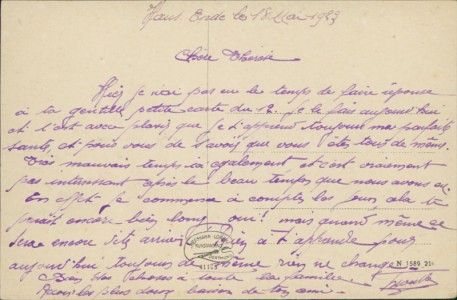 Haus Ende le 18 Mai 1923
Chère Thérèse
Hier je n'ai pas eu le temps de faire réponse
à ta gentille petite carte du 12. Je le fais aujourd'hui
et c'est avec plaisir que je t'apprend toujours ma parfaite
santé, et puis vous de savoir que vous êtes tous de même.
Très mauvais temps ici également et c'est vraiment
pas interessant après le beau temps que nous avons eu.
En effet je commence à compter les jours cela te
paraît encore bien long oui! mais quand même ce
sera encore vite arrivé Rien à t'apprendre pour
aujourd'hui toujours de même rien ne change
Bien des choses à toute la famille.
les plus doux baisers de ton ami.
N 1589 21